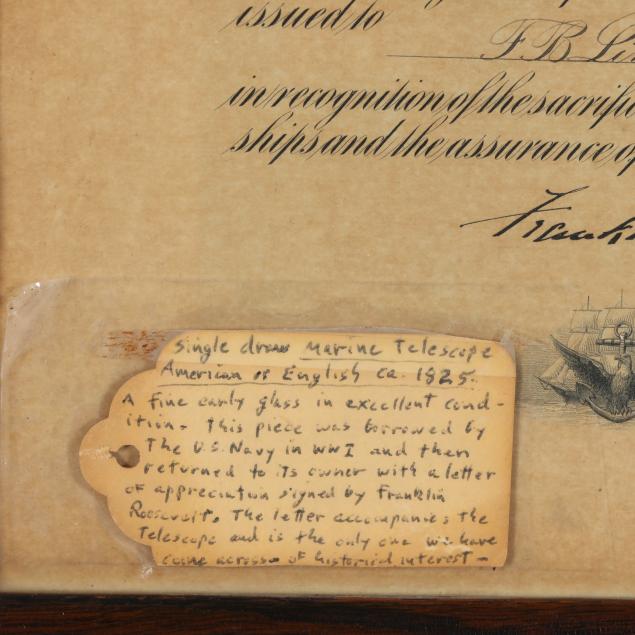 issued to
F B
in recognition of the sacrific
ships and the assurance of
Frank
Single draw Marine Telescope
American or English ca. 1825.
A fine early glass in excellent cond-
ition. This piece was borrowed by
The U.S. Navy in WWI and then
returned to its owner with a letter
of appreciation signed by Franklin
Roosevelt. The letter accompanies the
Telescope and is the only one we have
come across of historical interest -